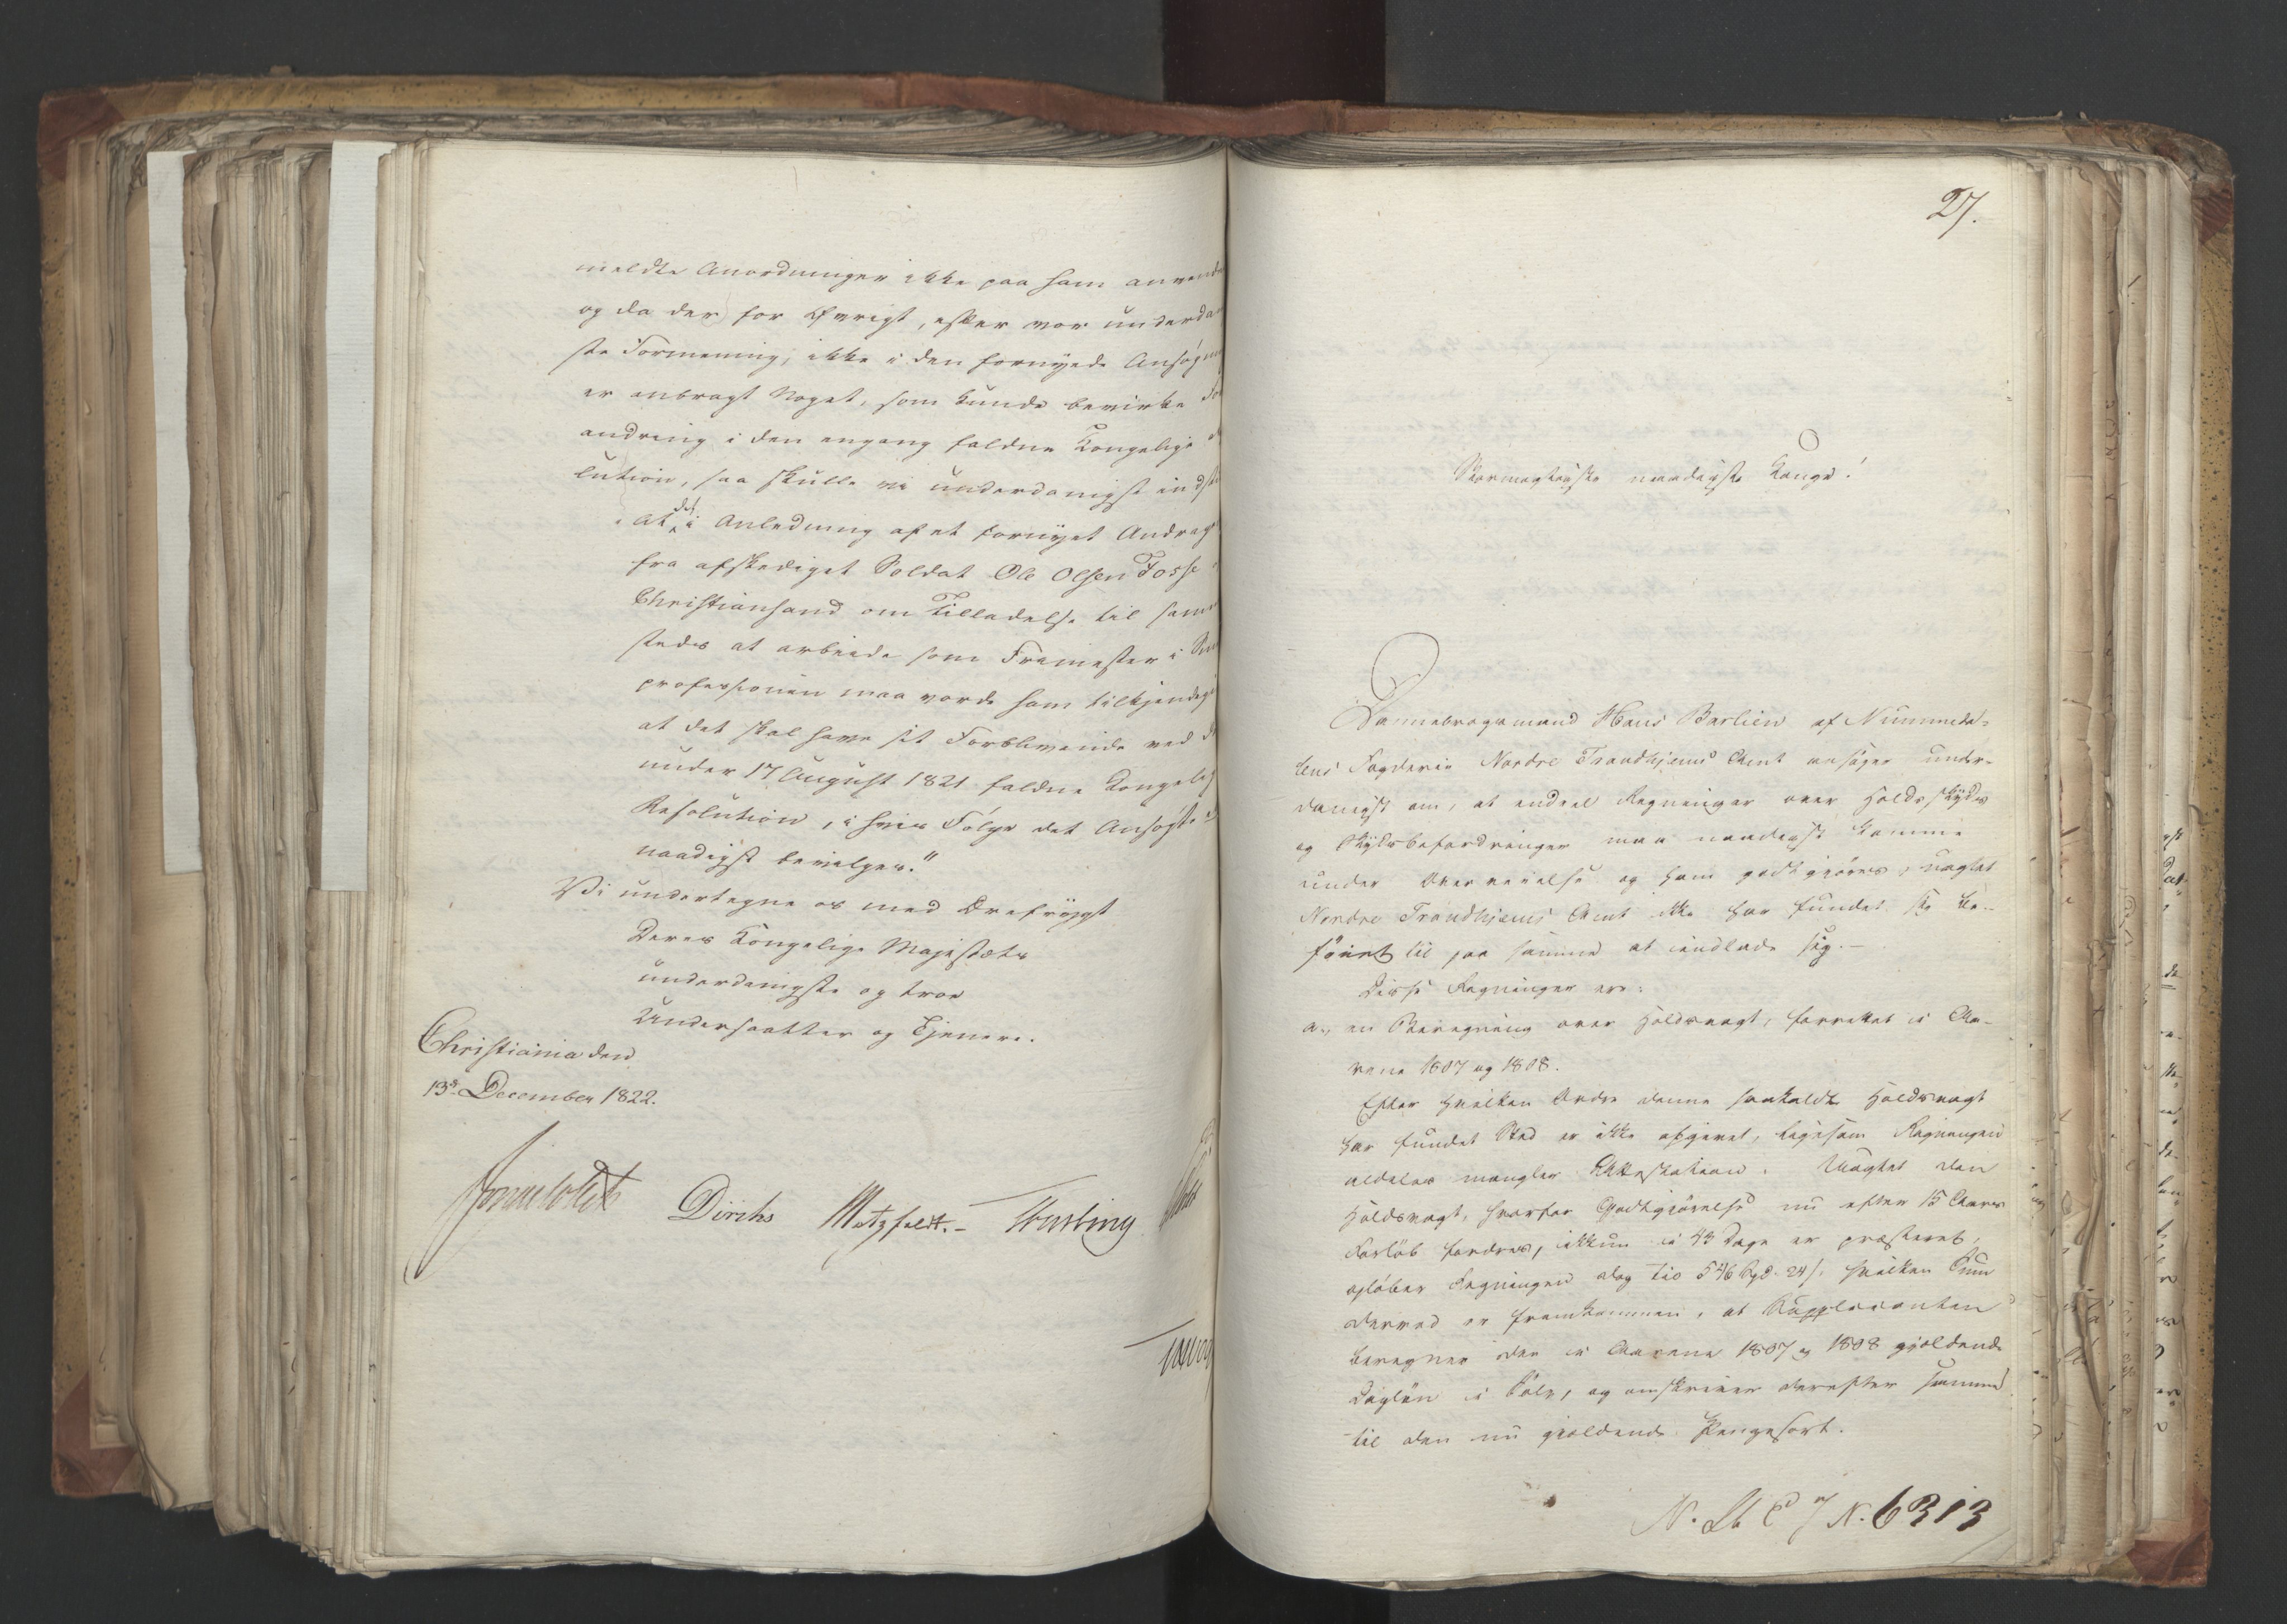 meldte Anordninger ikke paa ham anvende
og da der for Øvrigt, efter vor underda
ste Formening, ikke i den fornyede Ansøgn
er anbragt Noget, som kunde bevirke For
andring i den engang faldne Kongelige
lution, saa skulle vi underdanigst indst
"At det i Anledning af et fornyet Andrag
fra afskediget Soldat Ole Olsen Fosse
Christiansand om Tilladelse til samme
steds at arbeide som Frimester i
professionen maa vorde ham tilkjendegi
at det skal have sit Forblivende ved d
under 17 August 1821 faldne Kongelig
Resolution, i hvis Følge det Ansøgte
naadigst bevilges."
Vi undertegne os med Ærefrygt
Deres Kongelige Majestæts
underdanigste og troe
Undersaatter og Tjenere.
Christiania den
13de December 1822.
Diriks Motzfeldt.
27.
Stormægtigste naadigste Konge!
Dannebrogsmand Hans Barlien af Nummeda-
lens Fogderie Nordre Trondhjems Amt ansøger under-
danigst om, at endeel Regninger over Holdsskyds
og Skydsbefordringer maa naadigst komme
under Overveielse og ham godtgjøres, uagtet
Nordre Trondhjems Amt ikke har fundet sig be-
føiet til paa samme at indlade sig.—
Disse Regninger ere:
a., en Beregning over Holdsvagt, forrettet i Aa-
rene 1807 og 1808.
Efter hvilken Ordre denne saakaldte Holdsvagt
har fundet Sted er ikke opgivet, ligesom Regningen
aldeles mangler Attestation. Uagtet den
Holdsvagt, hvorfor Godtgjørelse nu efter 15 Aars
Forløb fordres, ikkun i 43 Dage er præsteret,
opløber Regningen dog til 546 Spd. 24 s. hvilken Sum
derved er fremkommen, at Supplicanten
beregner den i Aarene 1807 og 1808 gjeldende
Dagløn i Sølv, og omskriver derefter samme
til den nu gjeldende Pengesort.
N. 6313